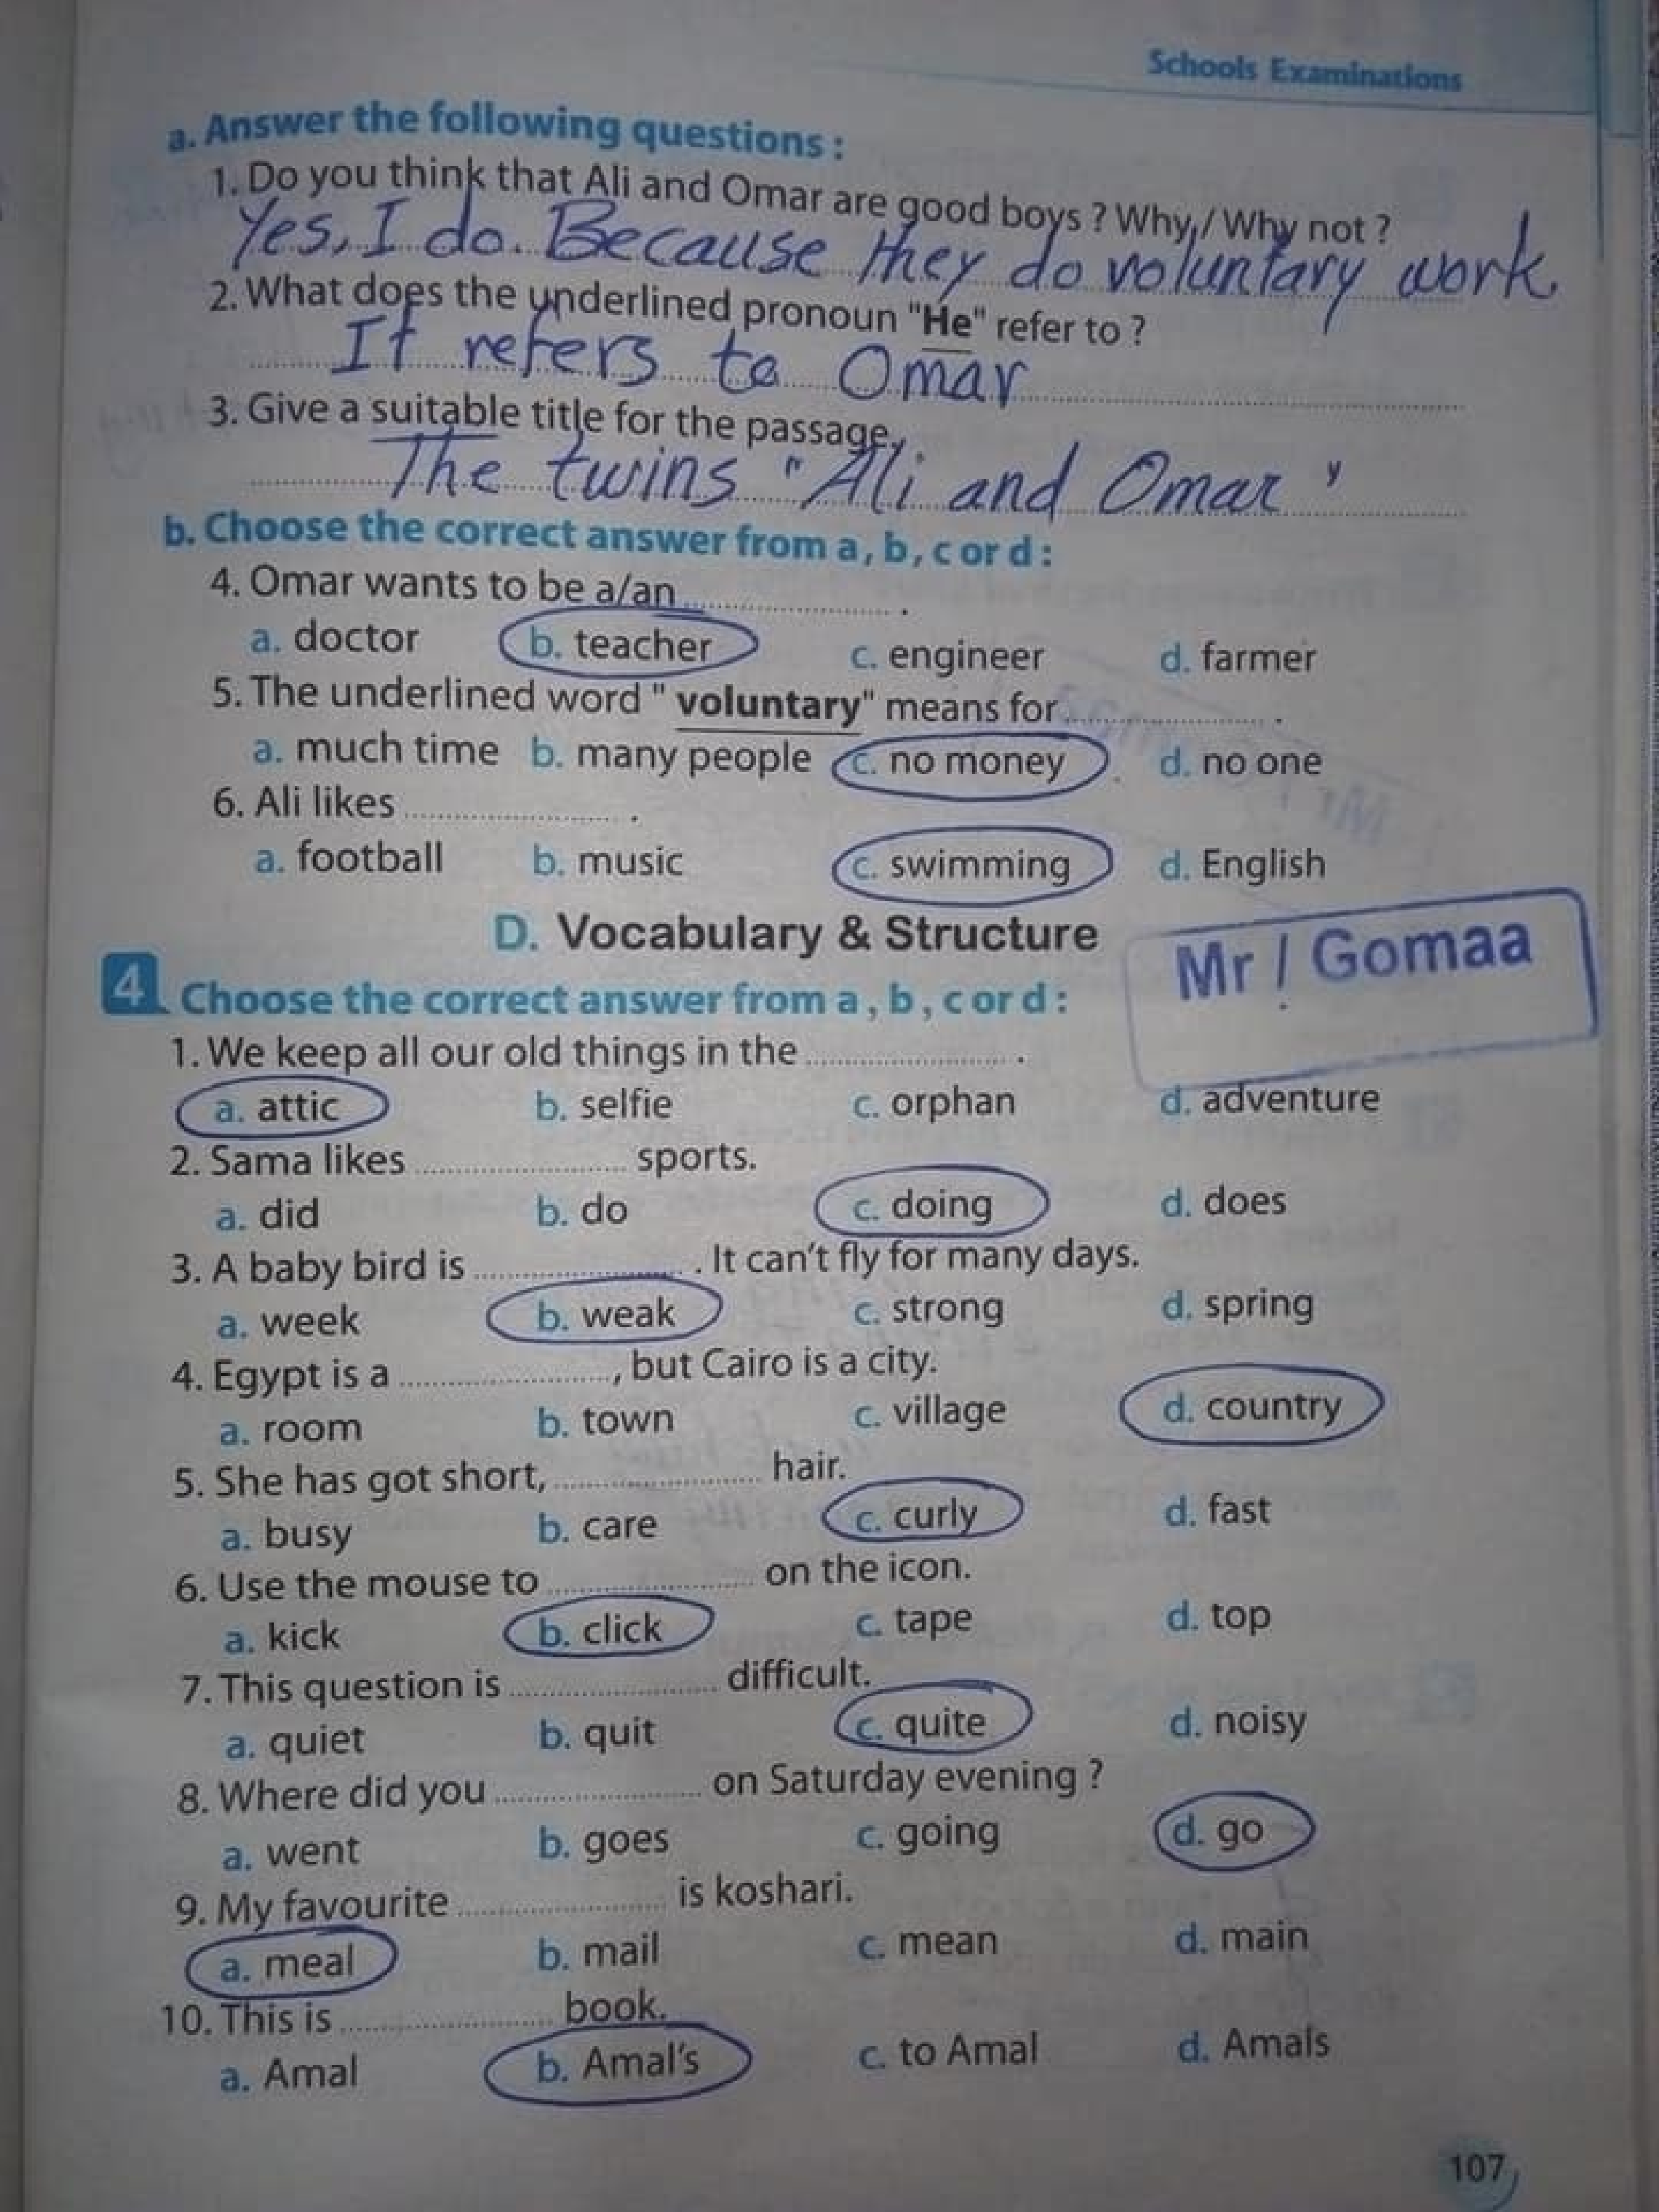 Schools Examinations
a. Answer the following questions :
1. Do you think that Ali and Omar are good boys ? Why / Why not ?
Yes, I do. Because they do voluntary work.
2. What does the underlined pronoun "He" refer to ?
It refers to Omar
3. Give a suitable title for the passage.
The twins "Ali and Omar"
b. Choose the correct answer from a , b , c or d :
4. Omar wants to be a/an .................... .
a. doctor b. teacher c. engineer d. farmer
5. The underlined word " voluntary" means for .................... .
a. much time b. many people c. no money d. no one
6. Ali likes .................... .
a. football b. music c. swimming d. English
D. Vocabulary & Structure
Mr / Gomaa
4 Choose the correct answer from a , b , c or d :
1. We keep all our old things in the .................... .
a. attic b. selfie c. orphan d. adventure
2. Sama likes .................... sports.
a. did b. do c. doing d. does
3. A baby bird is .................... . It can't fly for many days.
a. week b. weak c. strong d. spring
4. Egypt is a ...................., but Cairo is a city.
a. room b. town c. village d. country
5. She has got short, .................... hair.
a. busy b. care c. curly d. fast
6. Use the mouse to .................... on the icon.
a. kick b. click c. tape d. top
7. This question is .................... difficult.
a. quiet b. quit c. quite d. noisy
8. Where did you .................... on Saturday evening ?
a. went b. goes c. going d. go
9. My favourite .................... is koshari.
a. meal b. mail c. mean d. main
10. This is .................... book.
a. Amal b. Amal's c. to Amal d. Amals
107